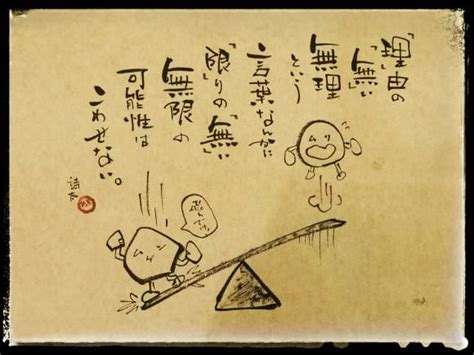 「理」由の
「無」い
無理
という
言葉なんかに
「限」りの「無」い
無限の
可能性は
こわせない。
ムリ